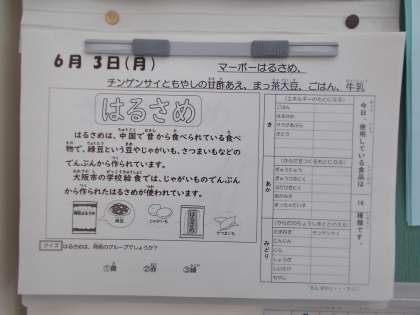 6月 3日(月)
マーボーはるさめ、
チンゲンサイともやしの甘酢あえ、まっ茶大豆、ごはん、牛乳
はるさめ
はるさめは、中国で昔から食べられている食べ
物で、緑豆という豆やじゃがいも、さつまいもなどの
でんぷんから作られています。
大阪市の学校給食では、じゃがいものでんぷん
から作られたはるさめが使われています。
緑豆
じゃがいも
さつまいも
クイズ はるさめは、何色のグループでしょうか？
①黄 ②赤 ③緑
今日、使用している食品は 18 種類です。
き
(エネルギーのもとになる)
ごはん
はるさめ
さとう
あか
(からだをつくるもとになる)
ぎゅうにゅう
みどり
(からだのちょうしをととのえる)
たまねぎ チンゲンサイ
にんじん
にら
しょうが
しいたけ
もやし